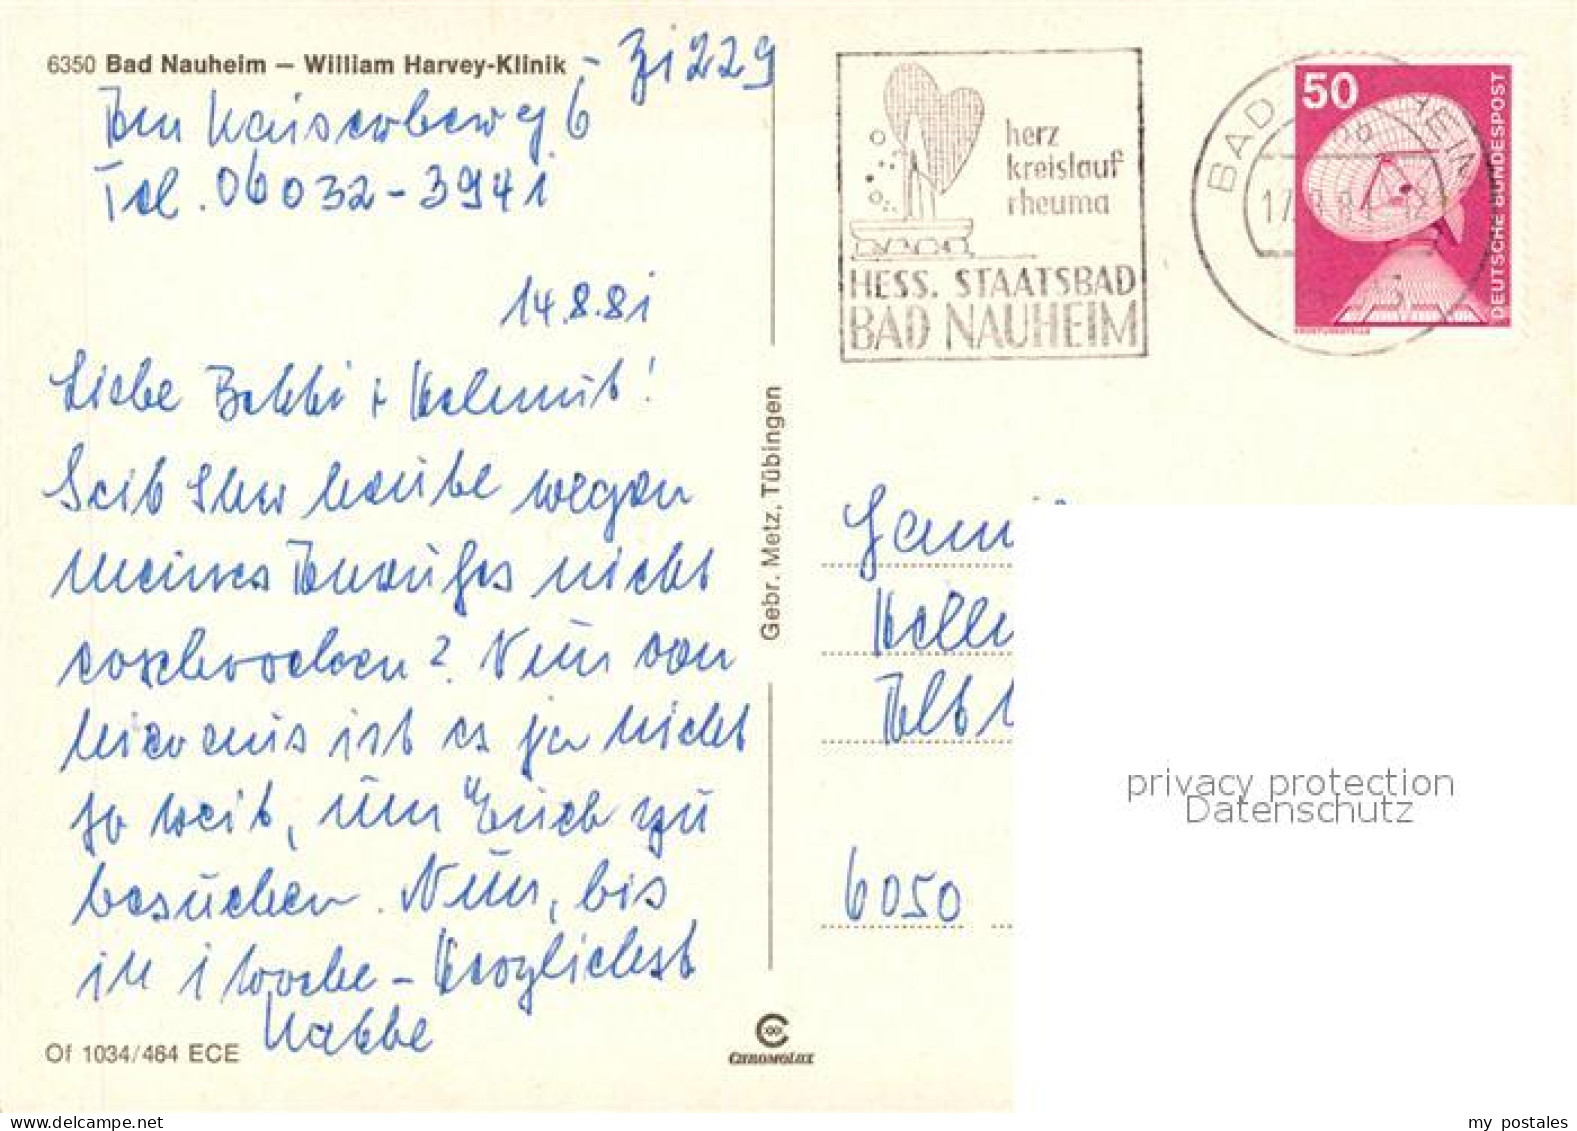 6350 Bad Nauheim – William Harvey-Klinik - Zi 229
Am Kaiserberg 6
Tel. 06032-3941
14.8.81
Liebe Betti + Helmut!
Seid Ihr heute wegen
meines Anrufes nicht
erschrocken? Nun von
hier aus ist es ja nicht
so weit, um Euch zu
besuchen. Nun, bis
in 1 Woche – Herzlichst
Käthe
Of 1034/464 ECE
Gebr. Metz, Tübingen
CHROMOLUX
herz
kreislauf
rheuma
HESS. STAATSBAD
BAD NAUHEIM
BAD
50
DEUTSCHE BUNDESPOST
6050
privacy protection
Datenschutz
my postales
www.delcampe.net